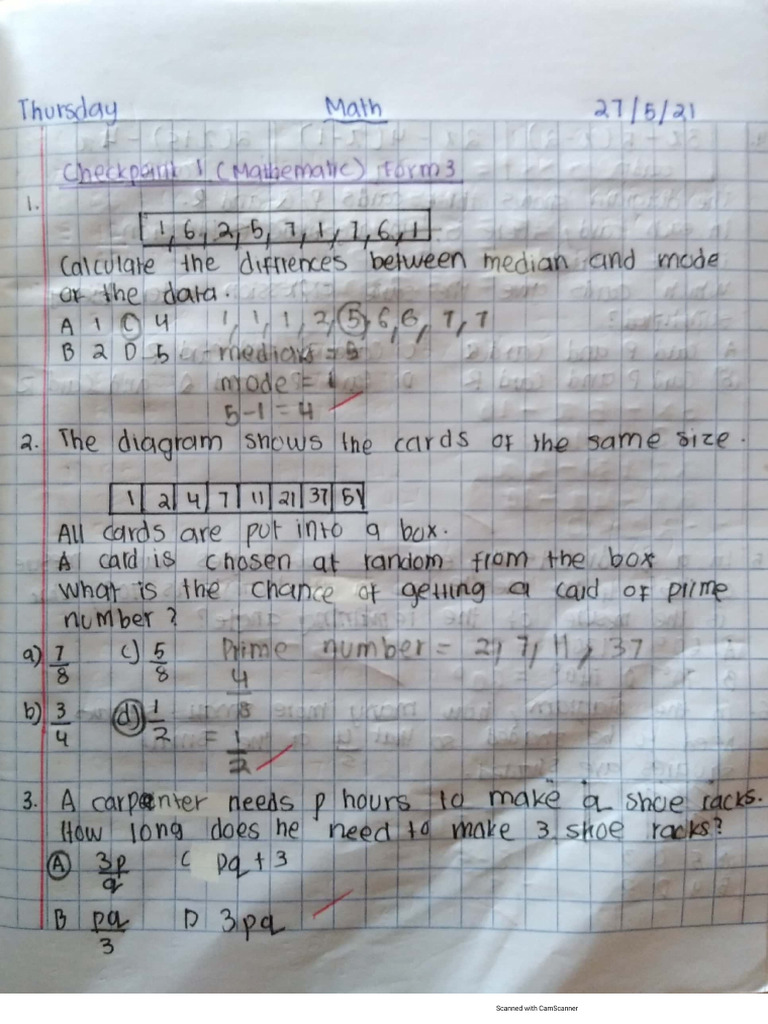 Thursday Math 27/5/21
Checkpoint 1 (Mathematic) Form 3
1.
1, 6, 2, 5, 7, 1, 7, 6, 1
Calculate the diffrences between median and mode
of the data.
A 1 C 4 1, 1, 1, 2, 5, 6, 6, 7, 7
B 2 D 5 median = 5
mode = 1
5-1 = 4
2. The diagram shows the cards of the same size.
1 2 4 7 11 21 37 51
All cards are put into a box.
A card is chosen at random from the box
What is the chance of getting a card of prime
number?
a) 7/8 c) 5/8 Prime number = 2, 7, 11, 37
4/8
b) 3/4 d) 1/2 = 1/2
3. A carpenter needs p hours to make q shoe racks.
How long does he need to make 3 shoe racks?
A 3p/q C pq + 3
B pq/3 D 3pq
Scanned with CamScanner